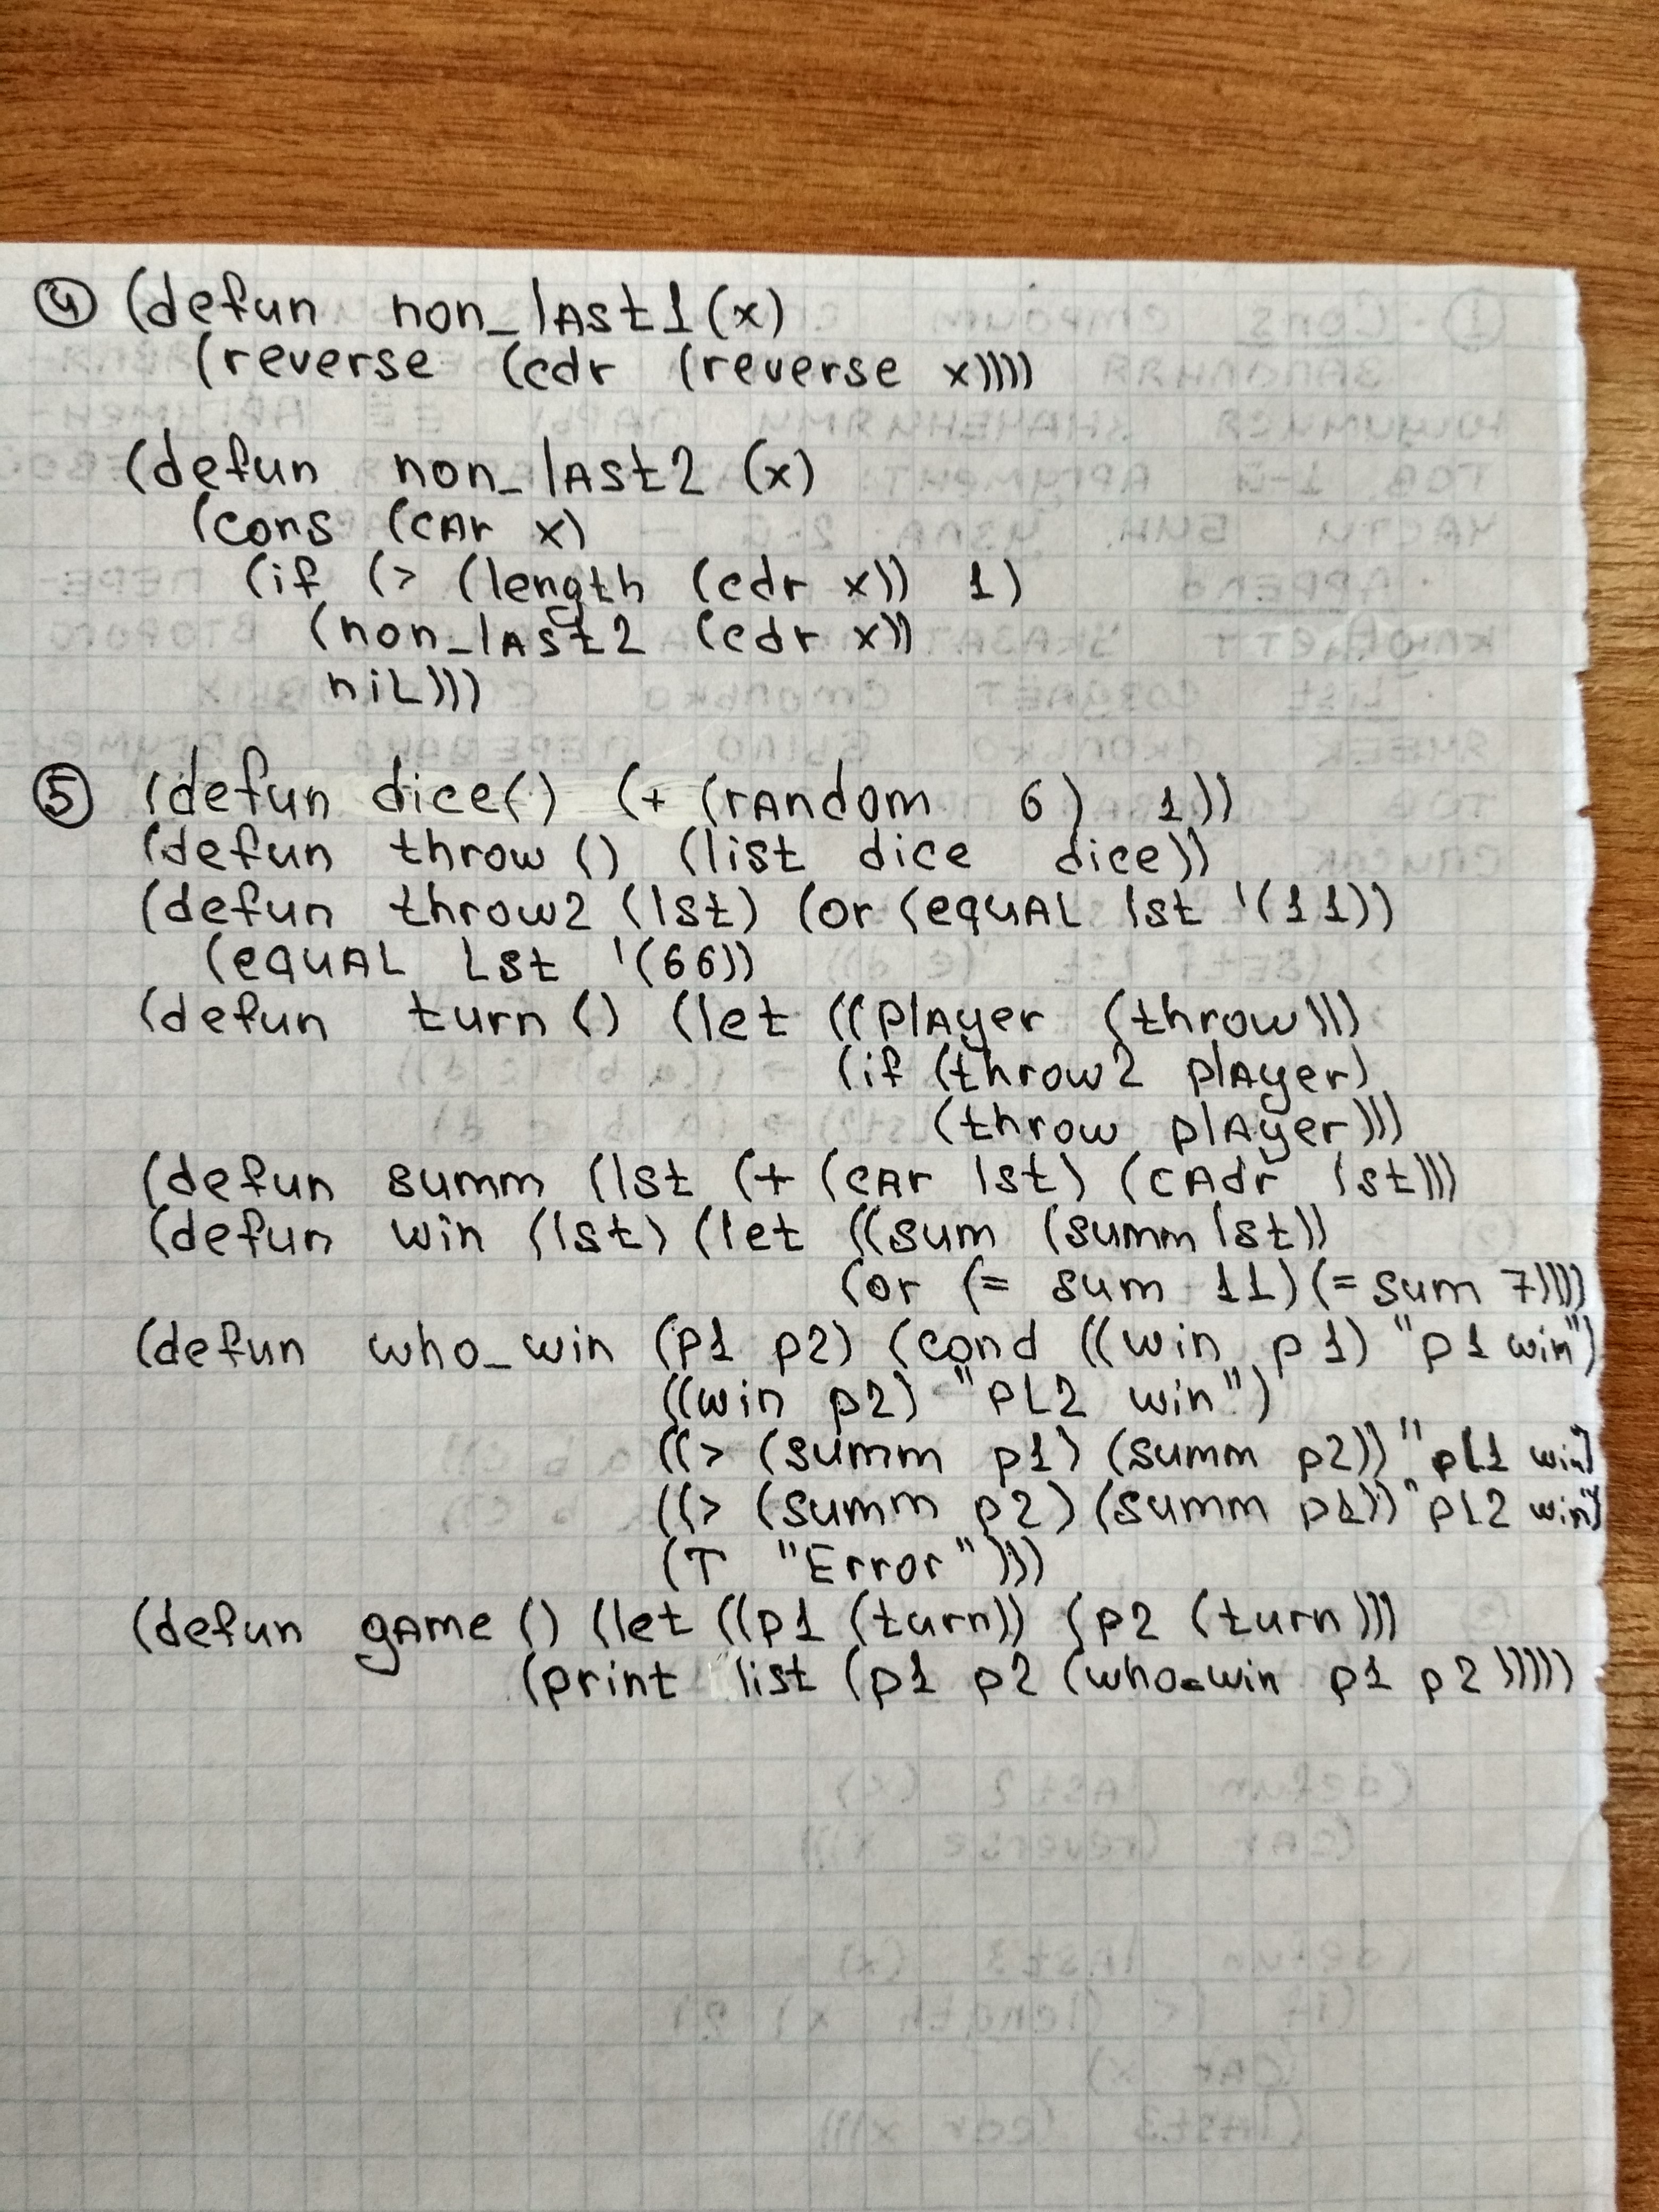 ④ (defun non_last1 (x)
(reverse (cdr (reverse x))))
(defun non_last2 (x)
(cons (car x)
(if (> (length (cdr x)) 1)
(non_last2 (cdr x))
nil)))
⑤ (defun dice() (+ (random 6) 1))
(defun throw () (list dice dice))
(defun throw2 (lst) (or (equal lst '(1 1))
(equal lst '(6 6))
(defun turn () (let ((player (throw)))
(if (throw2 player)
(throw player)))
(defun summ (lst (+ (car lst) (cadr lst)))
(defun win (lst) (let ((sum (summ lst))
(or (= sum 11) (= sum 7))))
(defun who_win (p1 p2) (cond ((win p1) "p1 win")
((win p2) "pl2 win")
((> (summ p1) (summ p2)) "pl1 win")
((> (summ p2) (summ p1)) "pl2 win")
(T "Error")))
(defun game () (let ((p1 (turn)) (p2 (turn)))
(print list (p1 p2 (who_win p1 p2)))))